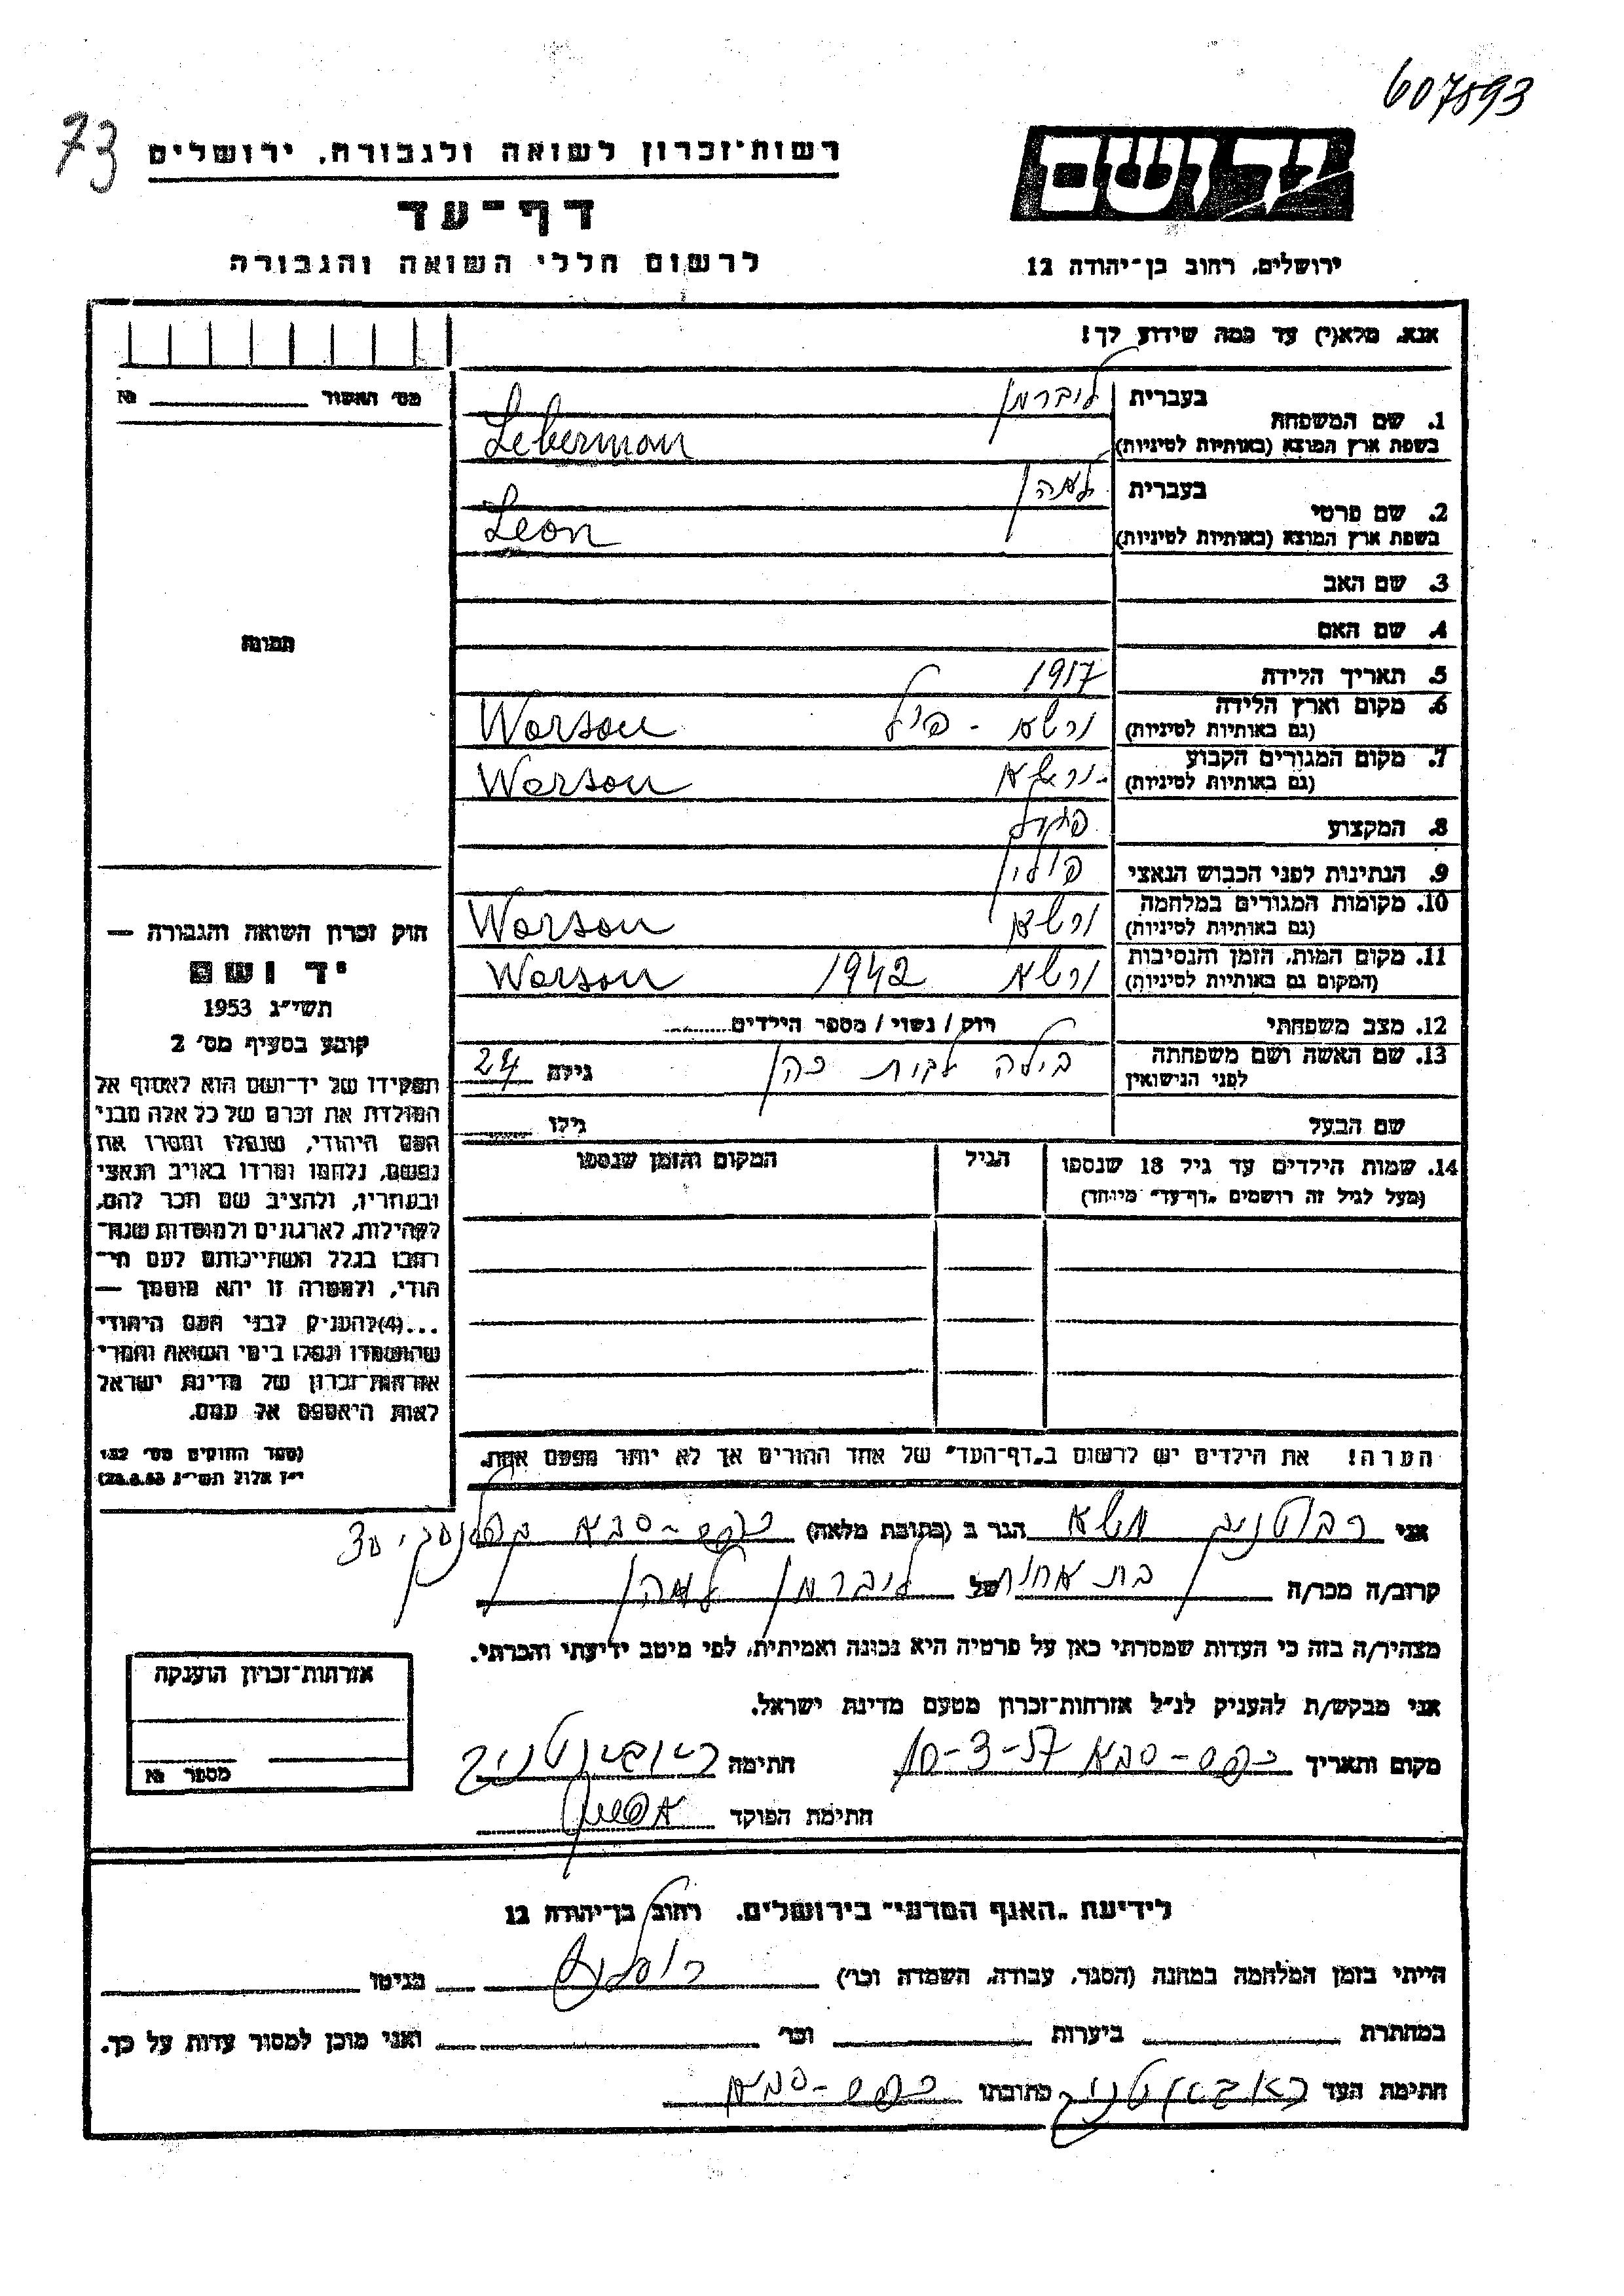 607893
73
רשות־זכרון לשואה ולגבורה, ירושלים
יד ושם
דף־עד
לרשום חללי השואה והגבורה
ירושלים, רחוב בן־יהודה 12
אנא, מלא(י) עד כמה שידוע לך!
מס׳ האשור № 
1. שם המשפחה בעברית ליברמן
בשפת ארץ המוצא (באותיות לטיניות) Leberman
2. שם פרטי בעברית
בשפת ארץ המוצא (באותיות לטיניות) Leon
3. שם האב
4. שם האם
תמונה
5. תאריך הלידה 1917
6. מקום וארץ הלידה (גם באותיות לטיניות) ורשא - פויל Warsau
7. מקום המגורים הקבוע (גם באותיות לטיניות) ורשא Warsau
8. המקצוע
9. הנתינות לפני הכבוש הנאצי פולין
10. מקומות המגורים במלחמה (גם באותיות לטיניות) ורשא Warsau
11. מקום המות, הזמן והנסיבות (המקום גם באותיות לטיניות) ורשא 1942 Warsau
12. מצב משפחתי רווק / נשוי / מספר הילדים
13. שם האשה ושם משפחתה לפני הנישואין בילה לבית כהן גילה 24
שם הבעל גילו
14. שמות הילדים עד גיל 18 שנספו הגיל המקום והזמן שנספו
(מעל לגיל זה רושמים „דף־עד״ מיוחד)
חוק זכרון השואה והגבורה —
יד ושם
תשי״ג 1953
קובע בסעיף מס׳ 2
תפקידו של יד־ושם הוא לאסוף אל
המולדת את זכרם של כל אלה מבני
העם היהודי, שנפלו ומסרו את
נפשם, נלחמו ומרדו באויב הנאצי
ובעוזריו, ולהציב שם וזכר להם,
לקהילות, לארגונים ולמוסדות שנח־
רבו בגלל השתייכותם לעם הי־
הודי, ולמטרה זו יהא מוסמך —
...(4)להעניק לבני העם היהודי
שהושמדו ונפלו בימי השואה והמרי
אזרחות־זכרון של מדינת ישראל
לאות היאספם אל עמם.
(ספר החוקים מס׳ 132
י״ז אלול תשי״ג 28.8.53)
הערה! את הילדים יש לרשום ב„דף־העד״ של אחד ההורים אך לא יותר מפעם אחת.
אני הגר ב (כתובת מלאה) כפר-סבא 30
קרוב/ה מכר/ה בת אחות של ליברמן
מצהיר/ה בזה כי העדות שמסרתי כאן על פרטיה היא נכונה ואמיתית, לפי מיטב ידיעתי והכרתי.
אני מבקש/ת להעניק לנ״ל אזרחות־זכרון מטעם מדינת ישראל.
מקום ותאריך כפר-סבא 10-3-57 חתימה
חתימת הפוקד
אזרחות־זכרון הוענקה
מספר №
לידיעת „האגף המדעי״ בירושלים, רחוב בן־יהודה 12
הייתי בזמן המלחמה במחנה (הסגר, עבודה, השמדה וכו׳) בגיטו
במחתרת ביערות וכו׳ ואני מוכן למסור עדות על כך.
חתימת העד כתובתו כפר-סבא